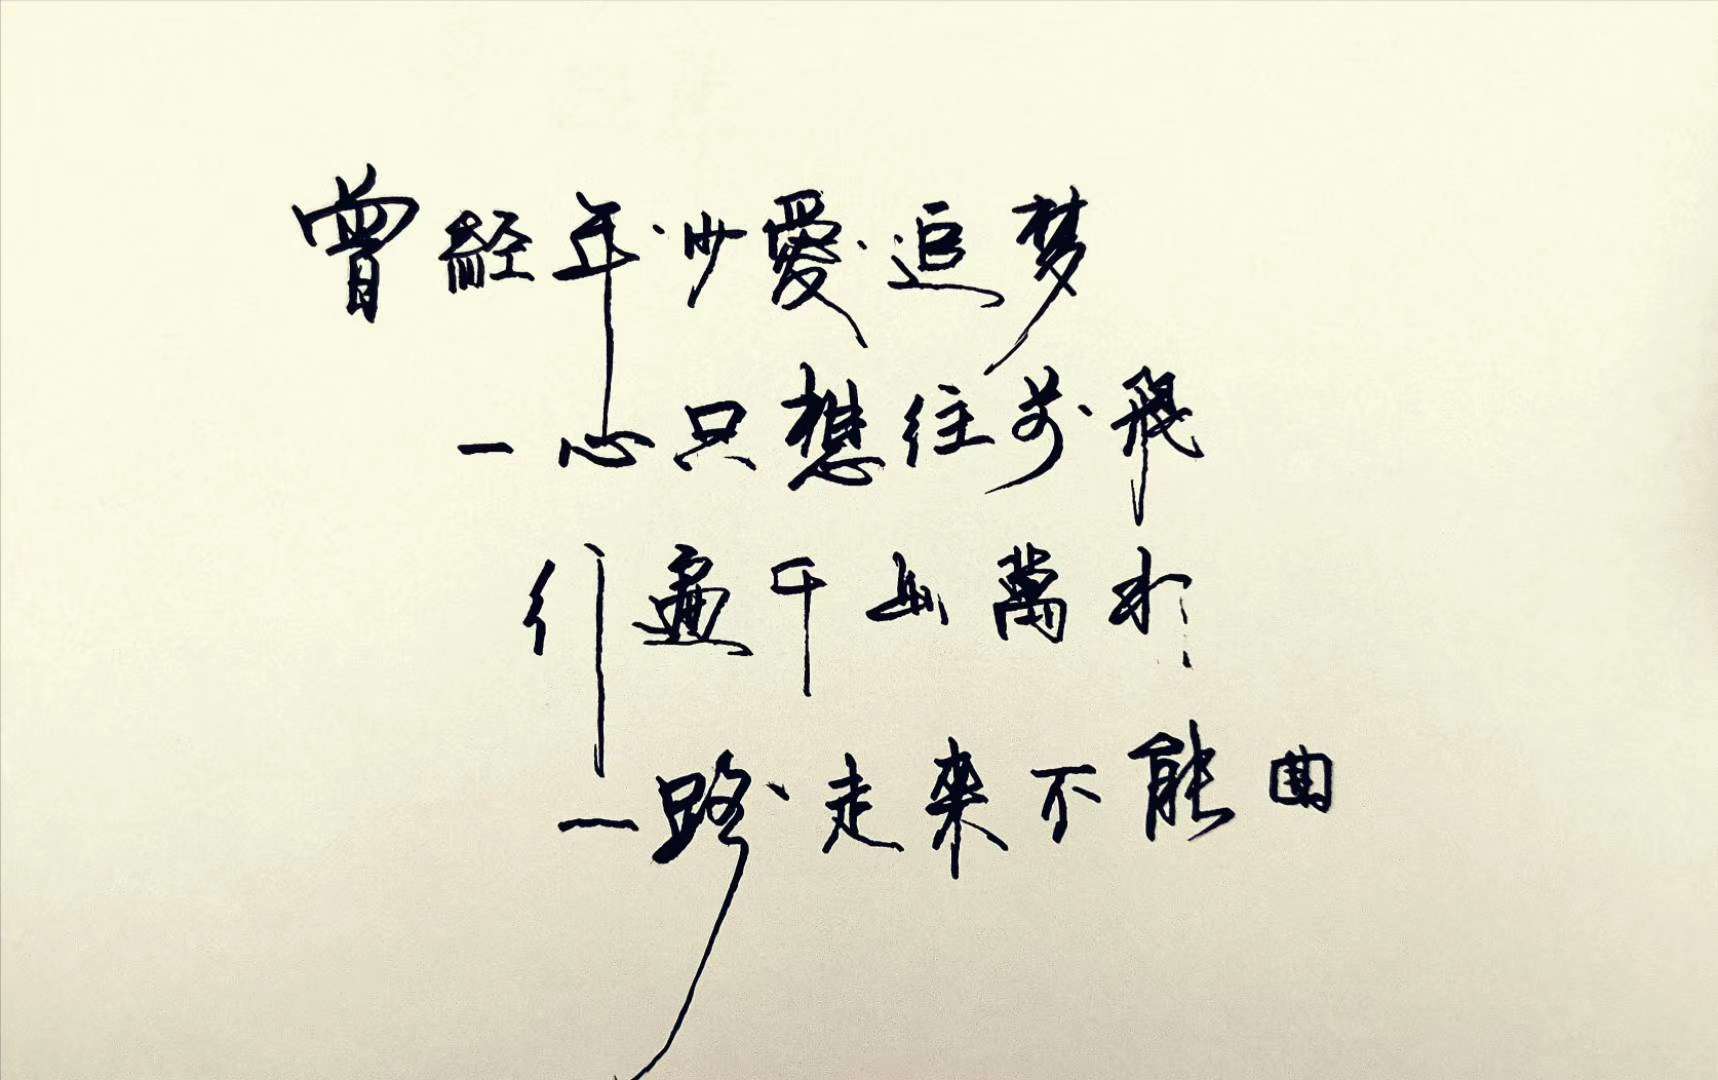 曾經年少愛追梦
一心只想往前飛
行遍千山萬水
一路走來不能回